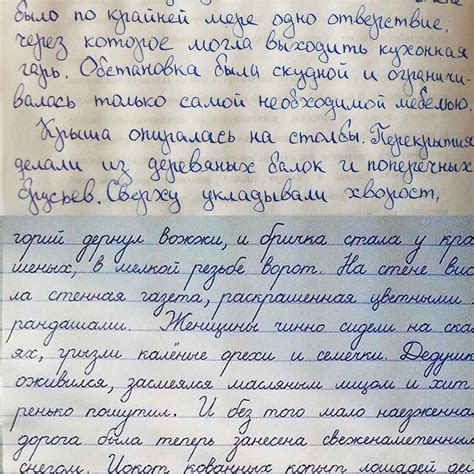 было по крайней мере одно отверстие,
через которое могла выходить кухонная
гарь. Обстановка была скудной и ограничи-
валась только самой необходимой мебелью.
Крыша опиралась на столбы. Перекрытия
делали из деревяных балок и поперечных
брусьев. Сверху укладывали хворост,
горий дернул вожжи, и бричка стала у кра
шеных, в мелкой резьбе ворот. На стене вис
ла стенная газета, раскрашенная цветными
рандашами. Женщины чинно сидели на ска
ях, грызли калёные орехи и семечки. Дедушк
оживился, засмеялся масляным лицом и хит
ренько пошутил. И без того мало наезженна
дорога была теперь занесена свеженаметенны
снегом. Цокот кованных копыт лошадей